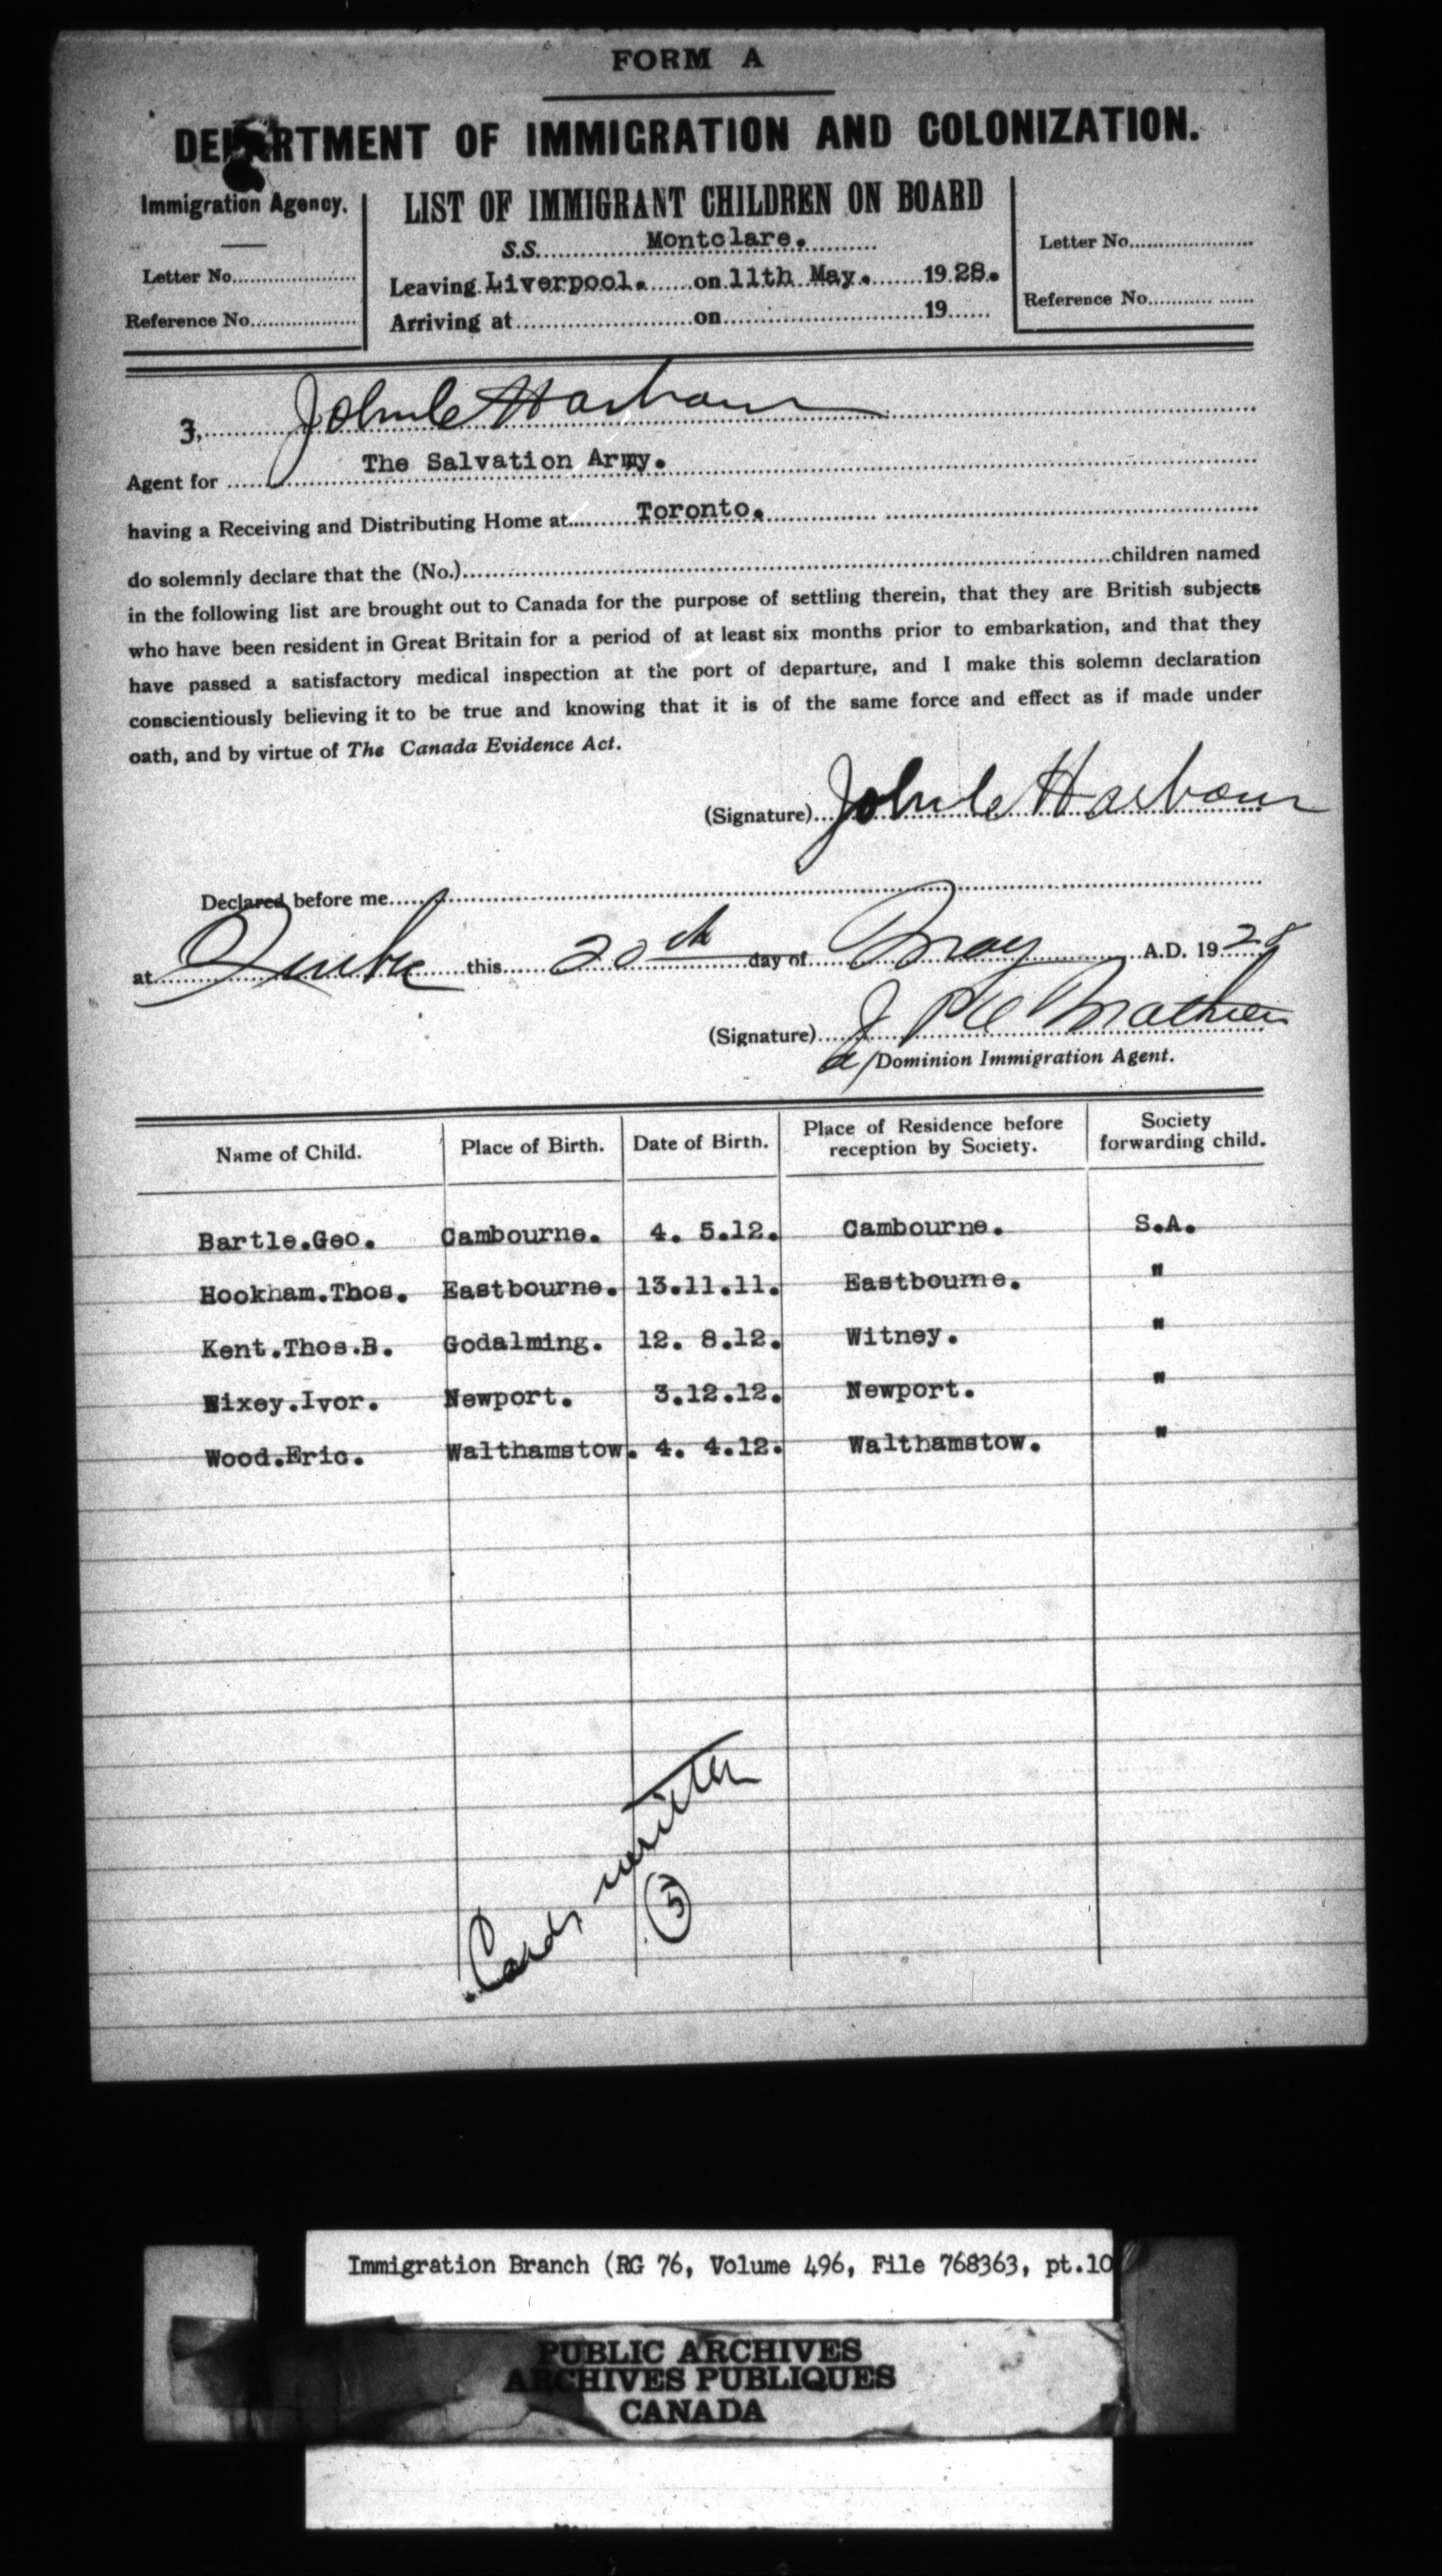 FORM A
DEPARTMENT OF IMMIGRATION AND COLONIZATION.
Immigration Agency.
Letter No.
Reference No.
LIST OF IMMIGRANT CHILDREN ON BOARD
S.S. Montclare.
Leaving Liverpool. on 11th May. 1928.
Arriving at on 19
Letter No.
Reference No.
I, John C Harbour
Agent for The Salvation Army.
having a Receiving and Distributing Home at Toronto.
do solemnly declare that the (No.) children named
in the following list are brought out to Canada for the purpose of settling therein, that they are British subjects
who have been resident in Great Britain for a period of at least six months prior to embarkation, and that they
have passed a satisfactory medical inspection at the port of departure, and I make this solemn declaration
conscientiously believing it to be true and knowing that it is of the same force and effect as if made under
oath, and by virtue of The Canada Evidence Act.
(Signature) John C Harbour
Declared before me
at Quebec this 20th day of May A.D. 1928
(Signature) J Mathieu
a/Dominion Immigration Agent.
Name of Child. Place of Birth. Date of Birth. Place of Residence before reception by Society. Society forwarding child.
Bartle.Geo. Cambourne. 4. 5.12. Cambourne. S.A.
Hookham.Thos. Eastbourne. 13.11.11. Eastbourne. "
Kent.Thos.B. Godalming. 12. 8.12. Witney. "
Ivor. Newport. 3.12.12. Newport. "
Wood.Eric. Walthamstow. 4. 4.12. Walthamstow. "
Cards written
5
Immigration Branch (RG 76, Volume 496, File 768363, pt.10
PUBLIC ARCHIVES
ARCHIVES PUBLIQUES
CANADA